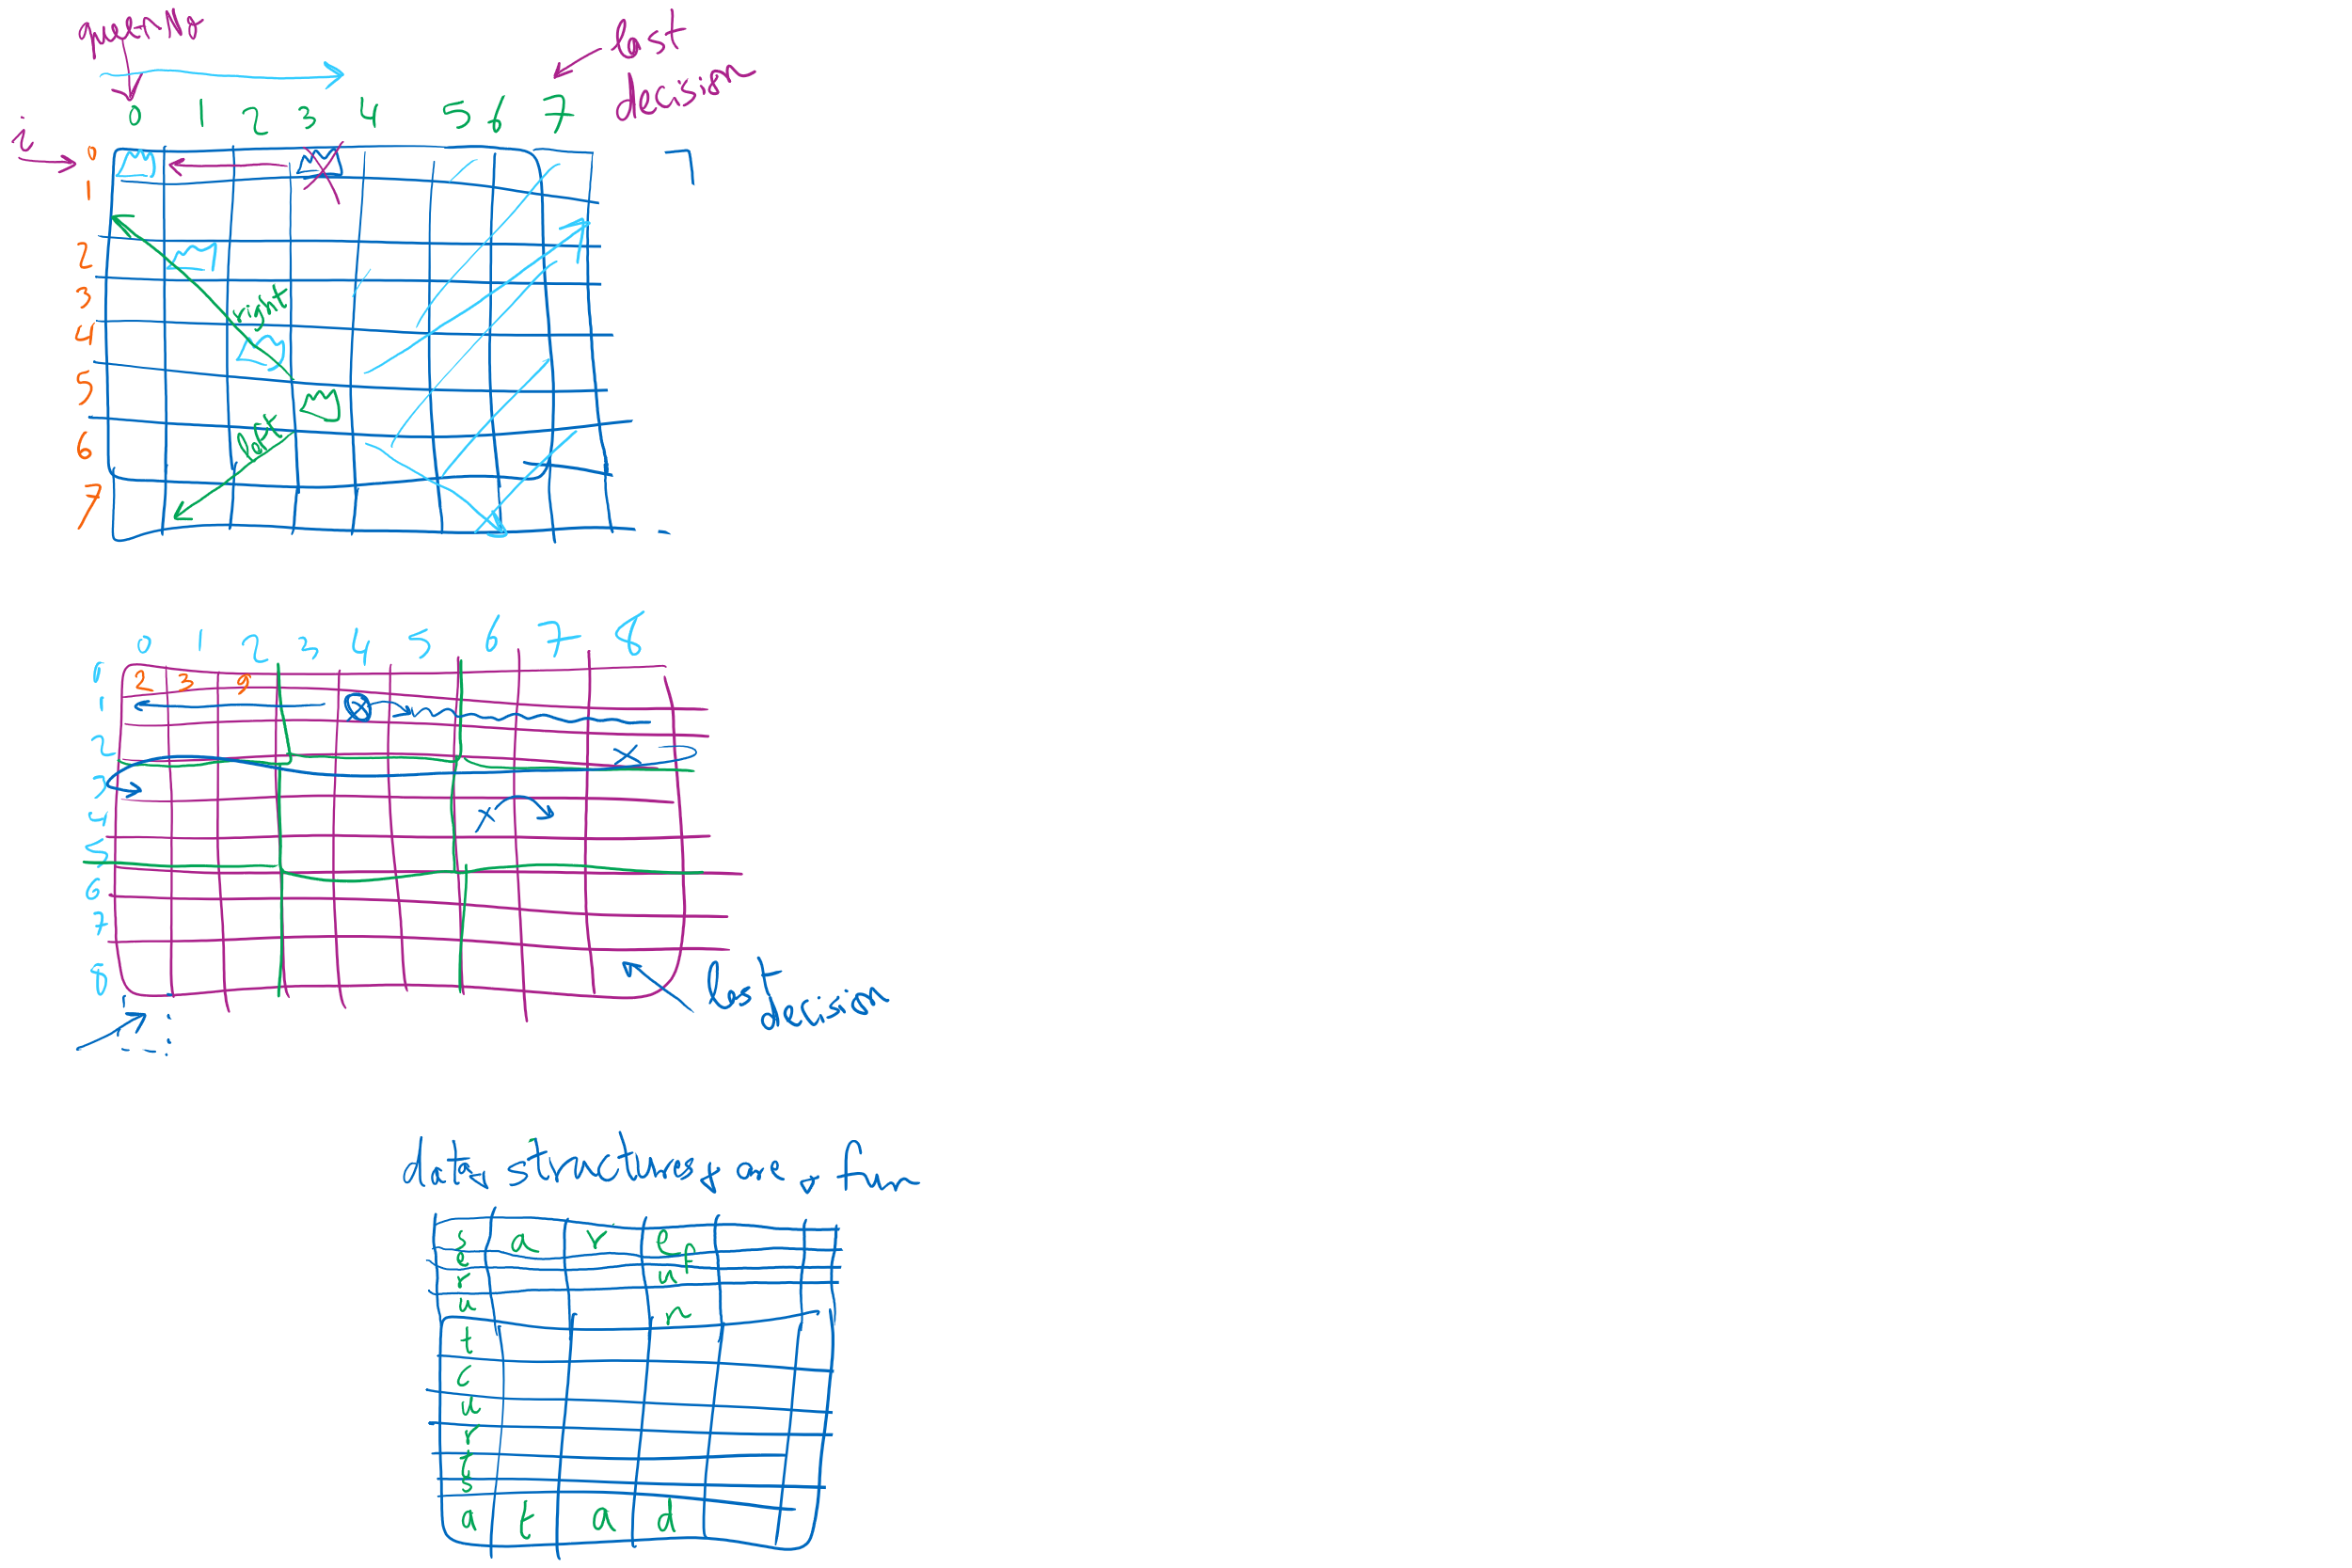 queenNo
last
decision
0 1 2 3 4 5 6 7
i
0
1
2
3
right
4
5
left
6
7
0 1 2 3 4 5 6 7 8
0 2 3 9
1
2
3
4
5
6
7
8
last
decision
data structures are fun
s a r e
e f
r u
u n
t
c
u
r
t
s
a t a d